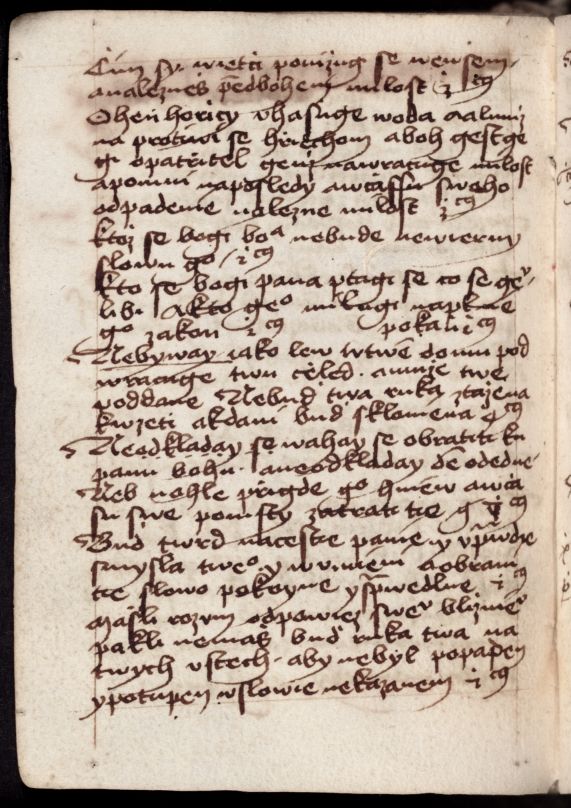 Cim sy wietssi ponizug se wewssem
a nalezness pred bohem milost
Ohen horicy vhassuge woda a almuz
na protiwi se hriechom a boh gest ge
gi opatritel genz nawracuge milost
a pomni naposledy a w czassu sweho
odpadenie nalezne milost
ktoz se bogi boa nebude newierny
slowu go
kto se bogi pana ptagi se co se gemu
libi A kto geo milugi naplnie
go zakon pokani
Nebyway iako lew w twem domu pod
wracuge twu czeled a muze twe
poddane Nebud twa ruka ztazena
k wzeti a k dani bud sklonena
Neodkladay se wahay se obratiti ku
panu bohu a neodkladay den ode dne
Neb nahle prigde go hniew a w cza
su swe pomsty zatrati tie
Bud twrd na ceste panie y v prawdie
smysla tweo y w vmieni a obrani
tie slowo pokoyne y sprawedlne
Massli rozum odpowiez swemu bliznie
pakli nemass bud ruka twa na
twych vstech aby nebyl popaden
y potupen w slowie nekazanem